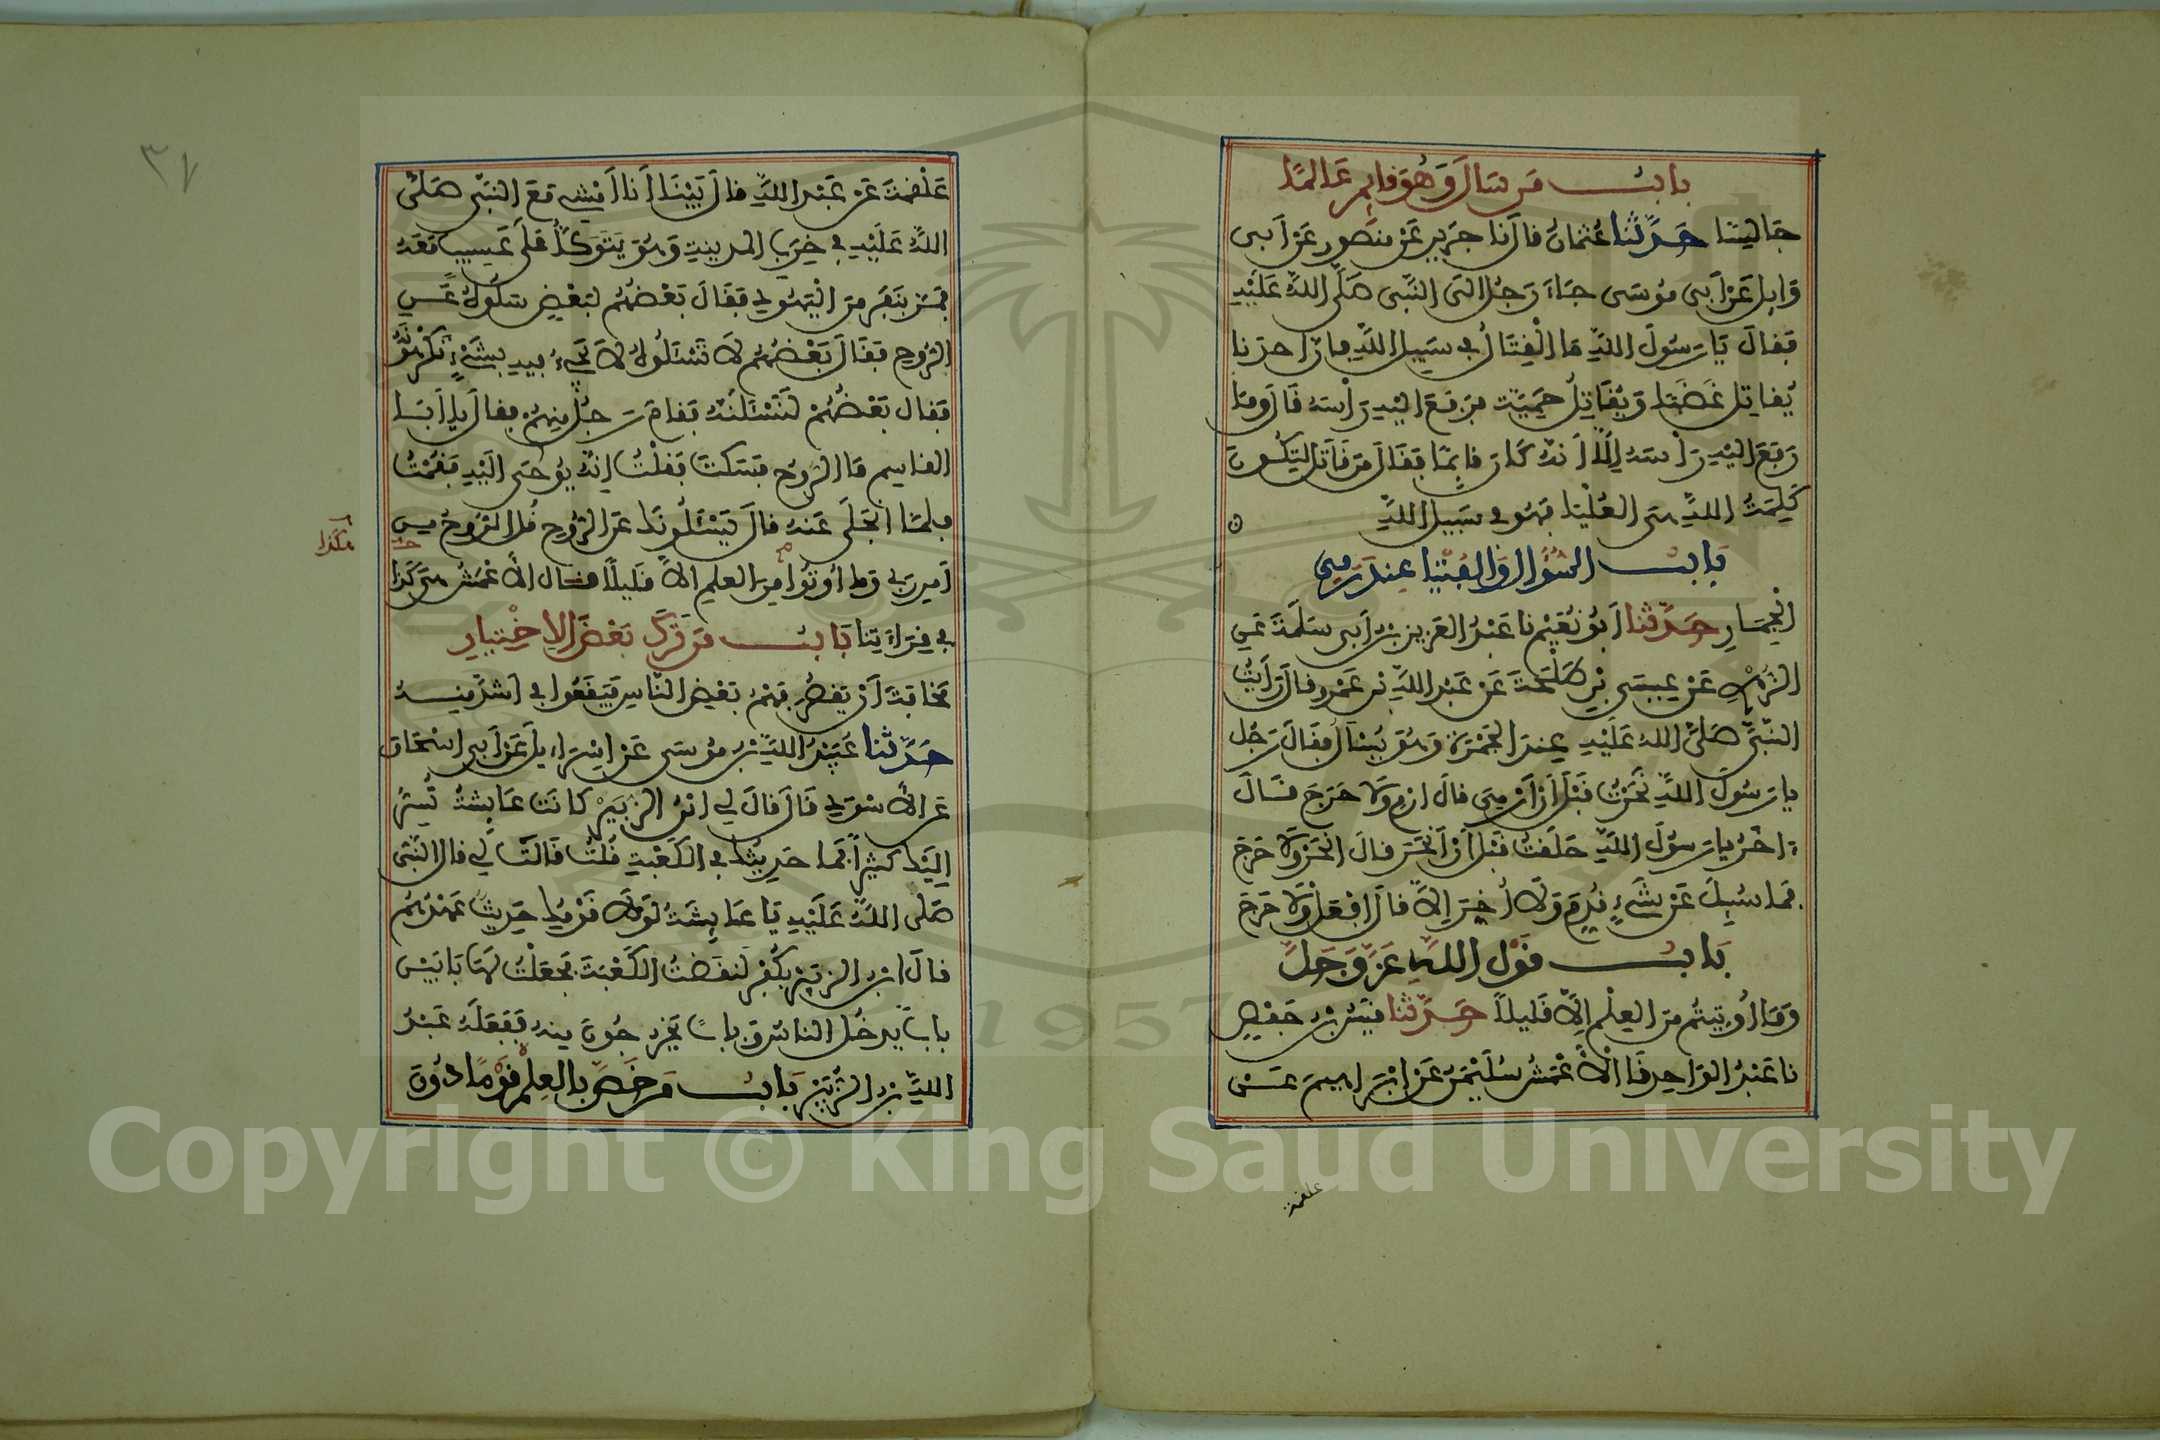 باب من سال وهو قايم عالما
جالسا حدثنا عثمان قال نا جرير عن منصور عن أبي
وايل عن أبي موسى جاء رجل الى النبي صلى الله عليه
فقال يا رسول الله ما القتال في سبيل الله فان احدنا
يقاتل غضبا ويقاتل حمية فرفع اليه راسه قال وما
رفع اليه راسه إلا أنه كان قايما فقال من قاتل لتكون
كلمة الله هي العليا فهو في سبيل الله
باب السؤال والفتيا عند رمي
الجمار حدثنا أبو نعيم نا عبد العزيز بن أبي سلمة عن
الزهري عن عيسى بن طلحة عن عبد الله بن عمرو قال رأيت
النبي صلى الله عليه عند الجمرة وهو يسئل فقال رجل
يا رسول الله نحرت قبل أن أرمي قال ارم ولا حرج قال
ءاخر يا رسول الله حلقت قبل أن أنحر قال انحر ولا حرج
فما سيل عن شيء قدم ولا أخر إلا قال افعل ولا حرج
باب قول الله عز وجل
وما أوتيتم من العلم إلا قليلا حدثنا قيس بن حفص
نا عبد الواحد نا الأعمش سليمن عن إبراهيم عن
علقمة
٣٧
علقمة عن عبد الله قال بينا أنا أمشي مع النبي صلى
الله عليه في خرب المدينة وهو يتوكأ على عسيب معه
فمر بنفر من اليهود فقال بعضهم لبعض سلوه عن
الروح فقال بعضهم لا تسئلوه لا يجيء فيه بشيء تكرهونه
فقال بعضهم لنسئلنه فقام رجل منهم فقال يا أبا
القاسم ما الروح فسكت فقلت إنه يوحى اليه فقمت
فلما انجلى عنه قال يسئلونك عن الروح قل الروح من
أمر ربي وما أوتوا من العلم الا قليلا قال الأعمش هي كذا
هكذا
في قراءتنا باب من ترك بعض الاختيار
مخافة أن يقصر فهم بعض الناس فيقعوا في أشد منه
حدثنا عبيد الله بن موسى عن إسراءيل عن أبي اسحاق
عن الأسود قال قال لي ابن الزبير كانت عايشة تسر
إليك كثيرا فما حديثك في الكعبة قلت قالت لي قال النبي
صلى الله عليه يا عايشة لولا قومك حديث عهدهم
قال ابن الزبير بكفر لنقضت الكعبة فجعلت لها بابين
بابا يدخل الناس وبابا يخرجون منه ففعله عبد
الله بن الزبير باب من خص بالعلم قوما دون